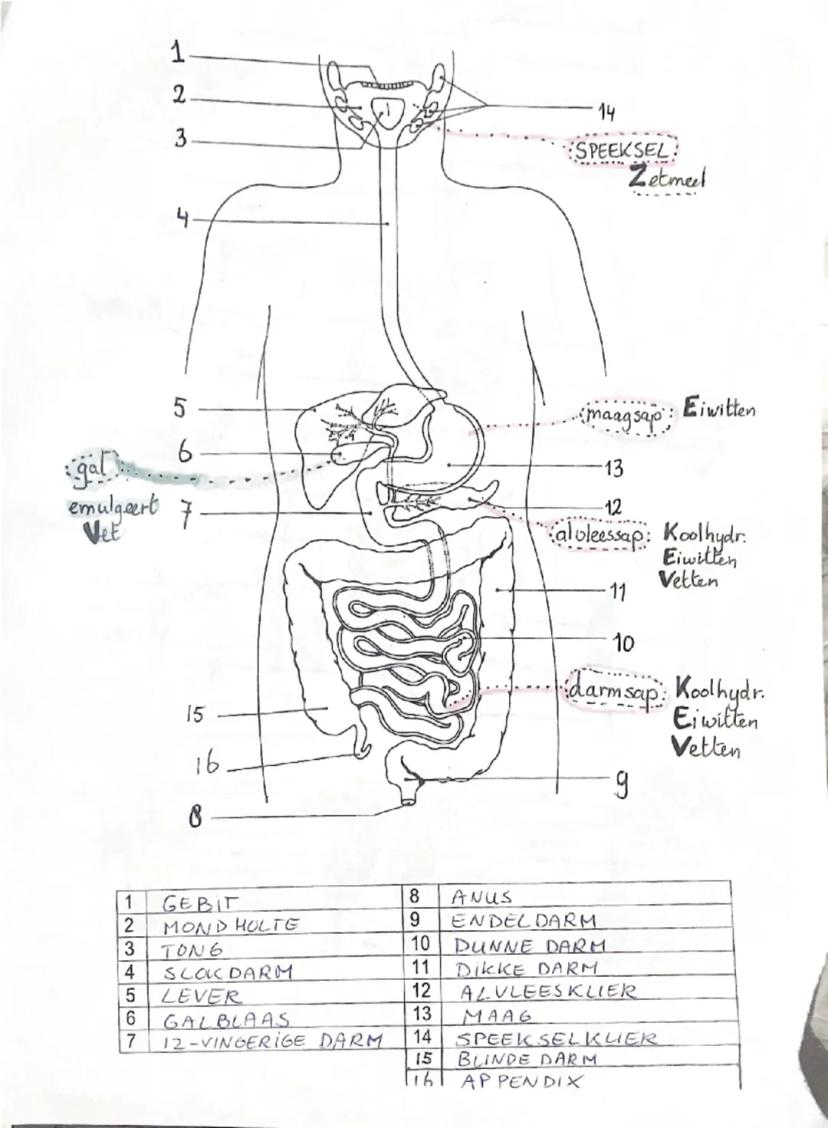 1
2
3
14
SPEEKSEL:
Zetmeel
4
5
maagsap: Eiwitten
6
gal
emulgeert
Vet
13
7
12
alvleessap: Koolhydr.
Eiwitten
Vetten
11
10
darmsap: Koolhydr.
Eiwitten
Vetten
15
16
9
8
1 GEBIT
2 MONDHOLTE
3 TONG
4 SLOKDARM
5 LEVER
6 GALBLAAS
7 12-VINGERIGE DARM
8 ANUS
9 ENDELDARM
10 DUNNE DARM
11 DIKKE DARM
12 ALVLEESKLIER
13 MAAG
14 SPEEKSELKLIER
15 BLINDE DARM
16 APPENDIX